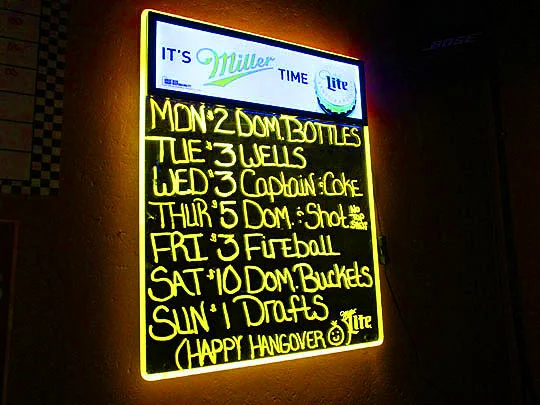 IT'S Miller TIME
Lite
MON $2 DOM. BOTTLES
TUE $3 WELLS
WED $3 Captain & Coke
THUR $5 DOM. & Shot NO TOP SHELF
FRI $3 Fireball
SAT $10 DOM. Buckets
SUN $1 Drafts
(HAPPY HANGOVER)
Lite
BOSE